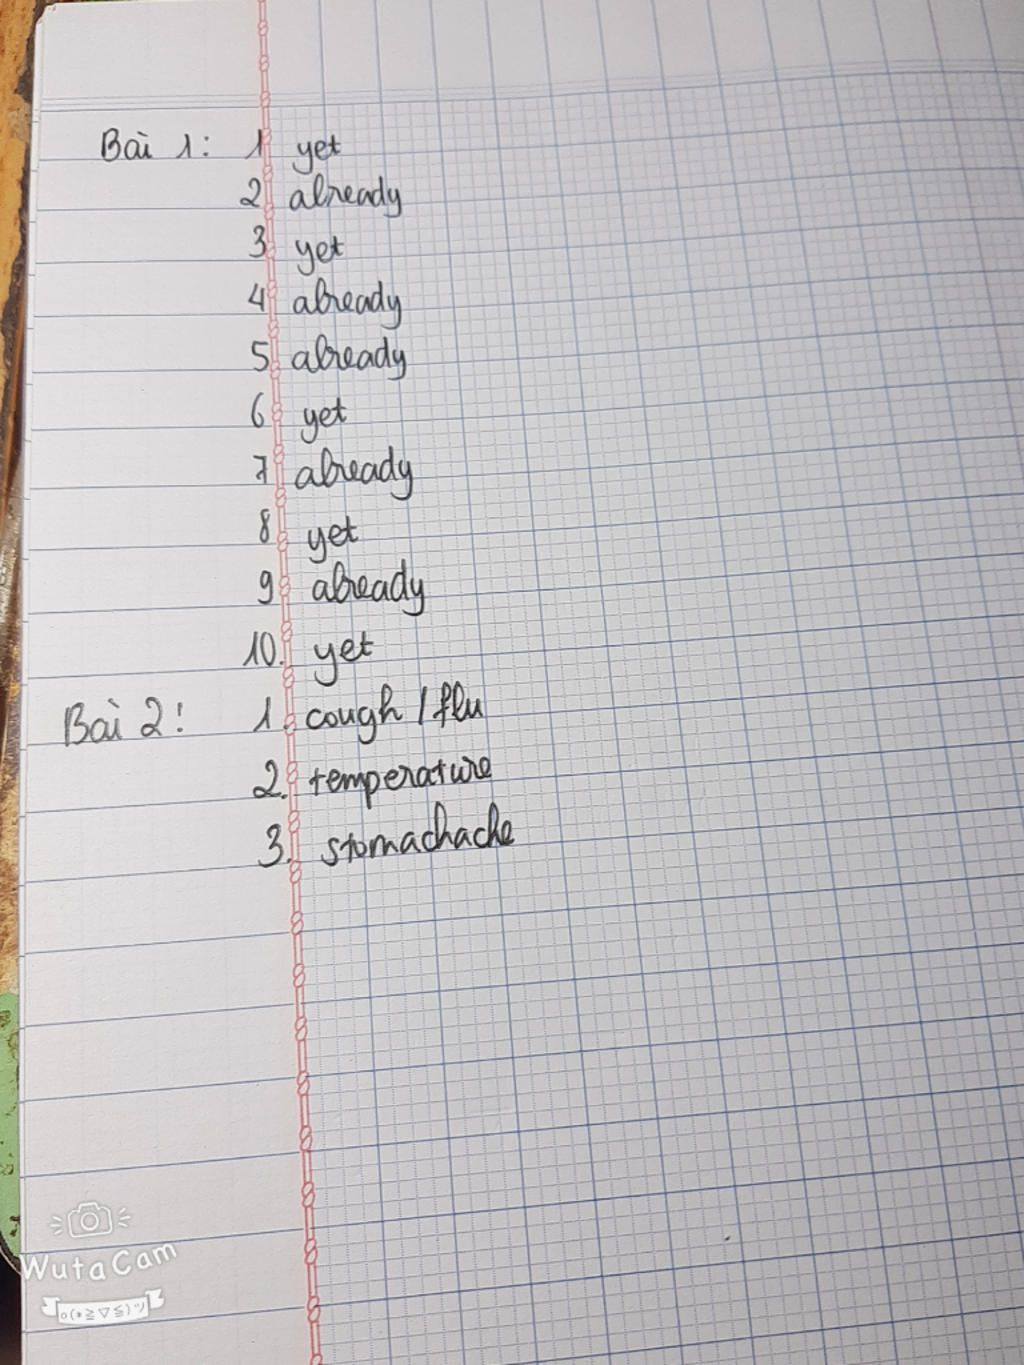 Bài 1: 1 yet
2 already
3 yet
4 already
5 already
6 yet
7 already
8 yet
9 already
10. yet
Bài 2! 1. cough / flu
2. temperature
3. stomachache
WutaCam
o(*≧▽≦)ツ